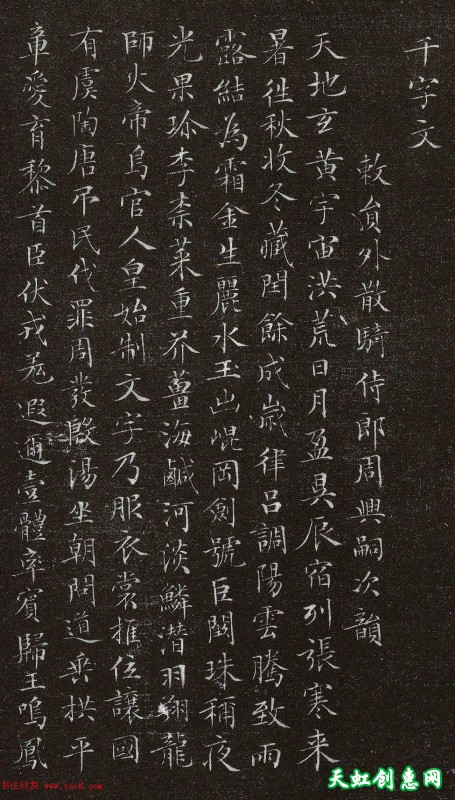 千字文
敕員外散騎侍郎周興嗣次韻
天地玄黃宇宙洪荒日月盈昃辰宿列張寒来
暑往秋收冬藏閏餘成歲律呂調陽雲騰致雨
露結為霜金生麗水玉出崐岡劍號巨闕珠稱夜
光果珎李柰菜重芥薑海鹹河淡鱗潛羽翔龍
師火帝鳥官人皇始制文字乃服衣裳推位讓國
有虞陶唐吊民伐罪周發殷湯坐朝問道垂拱平
章愛育黎首臣伏戎羌遐邇壹體率賓歸王鳴鳳
www.yac8.com
天虹创惠网